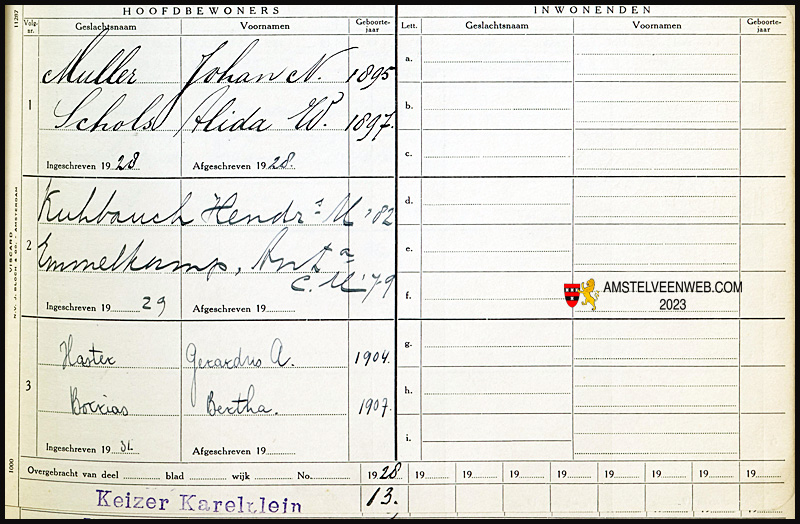 HOOFDBEWONERS INWONENDEN
Volg- nr. Geslachtsnaam Voornamen Geboorte- jaar Lett. Geslachtsnaam Voornamen Geboorte- jaar
1
Muller Johan N. 1895
Schols Alida W. 1897.
Ingeschreven 1928 Afgeschreven 1928.
2
Kuhbauch Hendr.a M '82
Emmelkamp, Ant.a
C. M '79
Ingeschreven 19 29 Afgeschreven 19
3
Harter Gerardus A. 1904.
Borrias Bertha. 1907.
Ingeschreven 19 31. Afgeschreven 19
a.
b.
c.
d.
e.
f.
g.
h.
i.
AMSTELVEENWEB.COM
2023
Overgebracht van deel blad wijk No. 1928 19 19 19 19 19 19 19 19
Keizer Karelplein 13.
11287
N.V. J. BLOCH & CO. - AMSTERDAM
VISCARD
1000